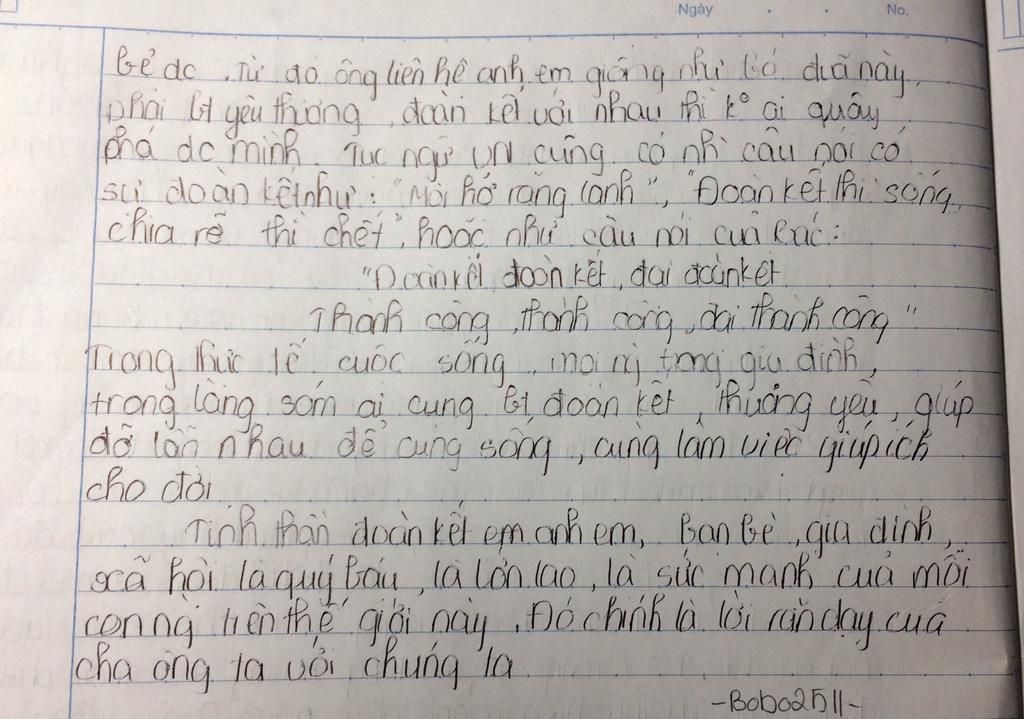 Ngày No.
bẻ dc. Từ đó ông liên hệ anh, em giống như bó đuã này
phải bt yêu thương, đoàn kết với nhau thì k° ai quấy
phá dc mình. Tục ngữ VN cũng có nh` câu nói có
sự đoàn kết như: "Môi hở răng lạnh", "Đoàn kết thì sống,
chia rẽ thì chết", hoặc như câu nói của Bác:
"Đoàn kết, đoàn kết, đại đoàn kết
Thành công, thành công, đại thành công"
Trong thực tế cuộc sống, mọi ng` trong gia đình,
trong làng sóm ai cũng bt đoàn kết, thương yêu, giúp
đỡ lẫn nhau để cùng sống, cùng làm việc giúp ích
cho đời
Tinh thần đoàn kết em anh em, bạn bè, gia đình,
xã hội là quý báu, là lớn lao, là sức mạnh của mỗi
con ng` trên thế giới này. Đó chính là lời răn dạy của
cha ông ta với chúng ta
-Bobo2511-